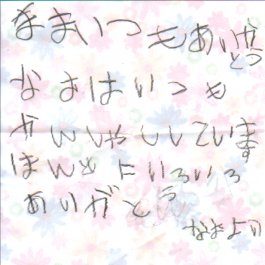 ままいつもあいがとう
なおはいつも
かんしゃししています
ほんとにいろいろ
あいがとう
なおより